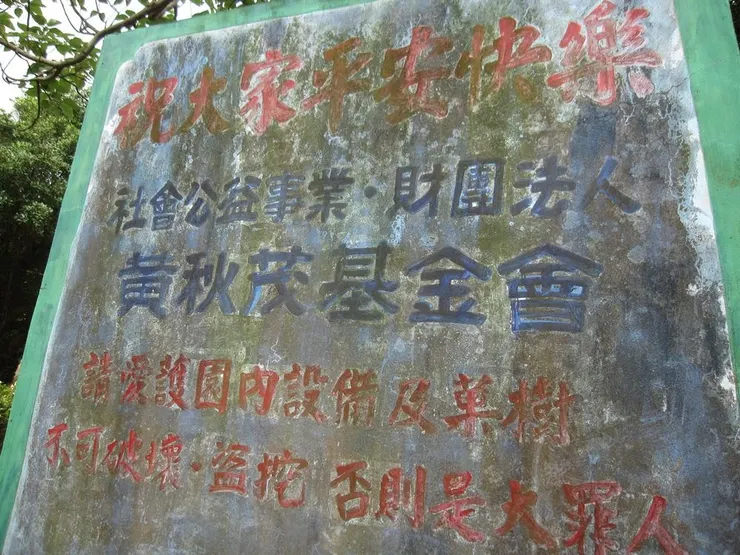 祝大家平安快樂
社會公益事業·財團法人
黃秋茂基金會
請愛護園內設備及菓樹
不可破壞·盜挖 否則是大罪人